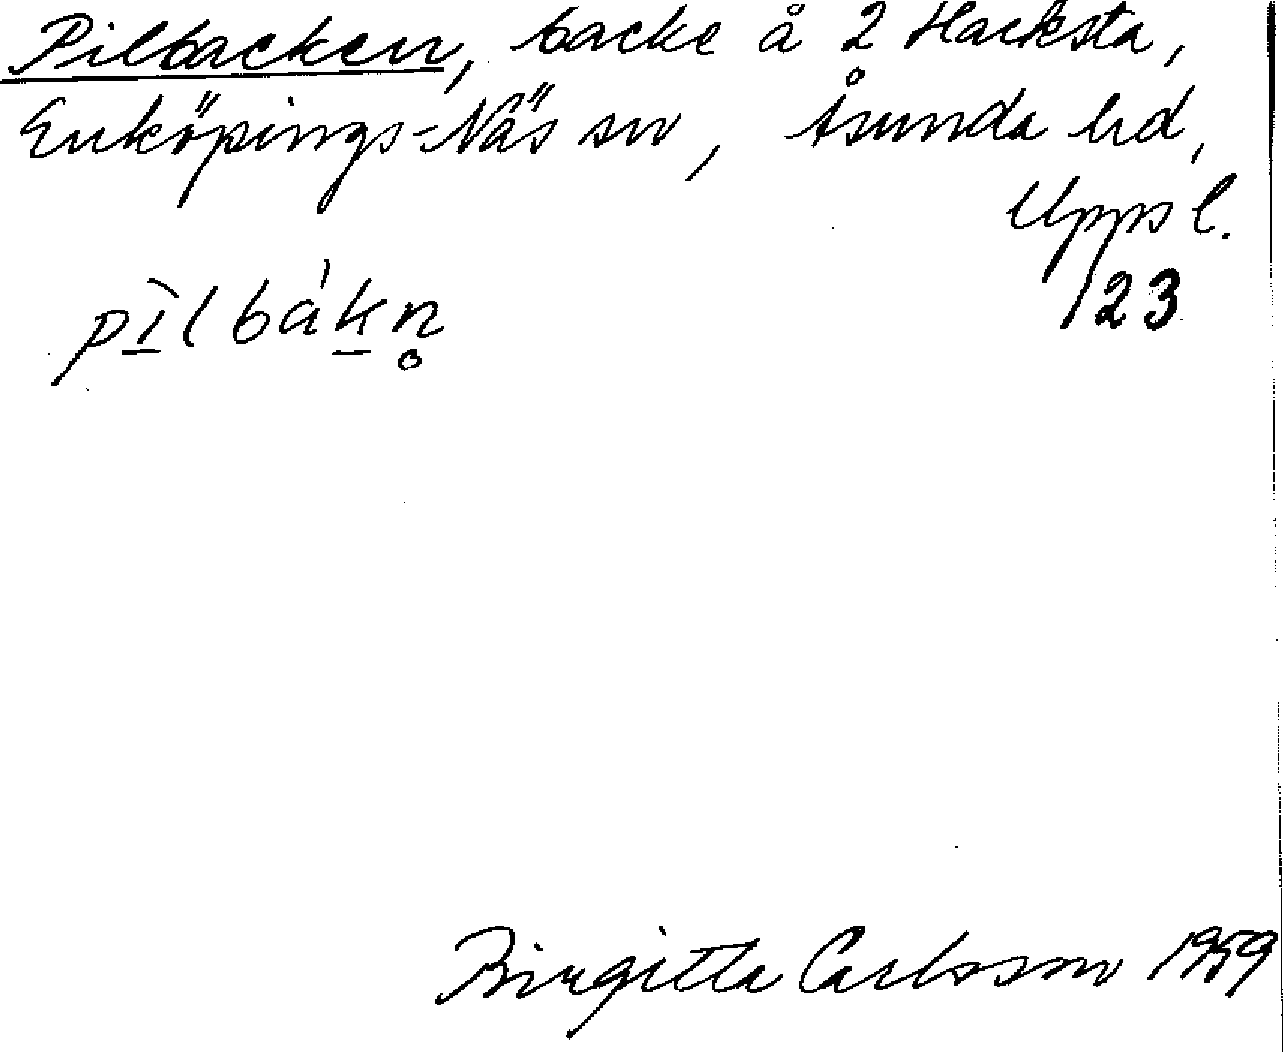 Pilbacken, backe å 2 Hacksta,
Enköpings-Näs sn, Åsunda hd,
Uppsl.
123
pìlbákn̥
Birgitta Carlsson 1959